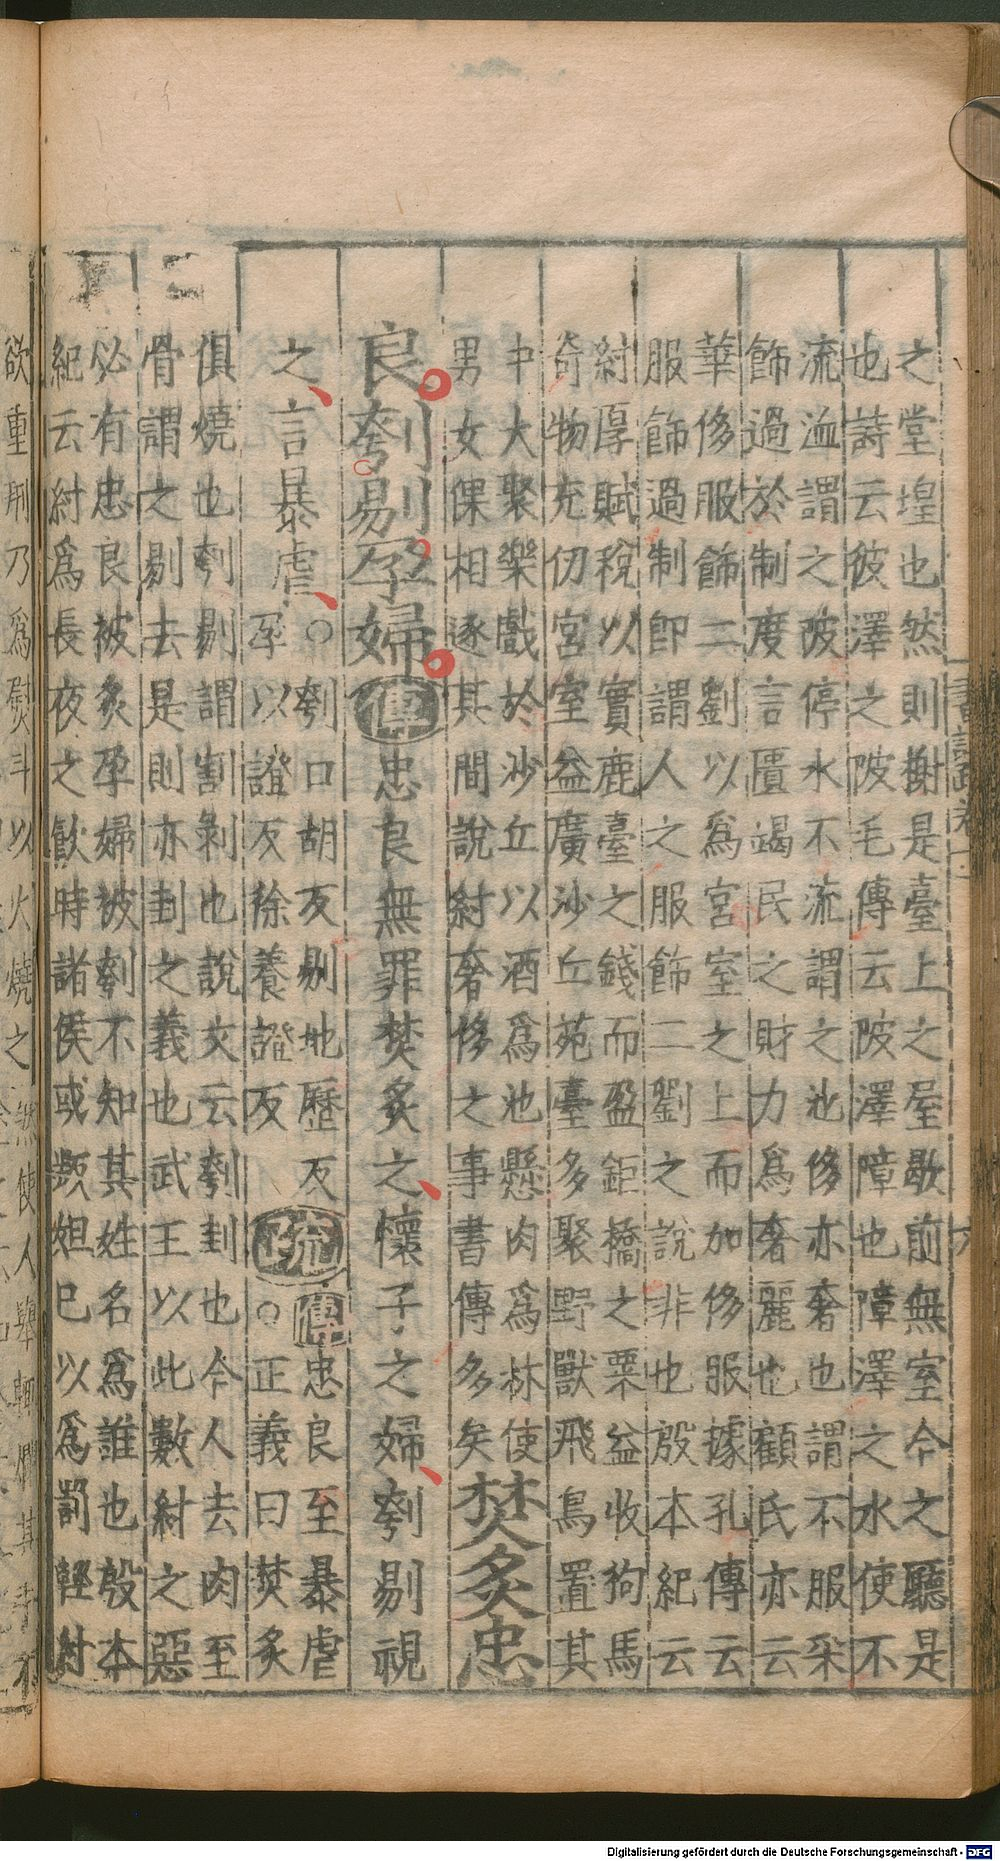 之堂堭也然則榭是臺上之屋歇前無室今之廳是
也詩云彼澤之陂毛傳云陂澤障也障澤之水使不
流溢謂之陂停水不流謂之池侈亦奢也謂不服采
飾過於制度言匱竭民之財力爲奢麗也顧氏亦云
華侈服飾二劉以爲宮室之上而加侈服據孔傳云
服飾過制即謂人之服飾二劉之說非也殷本紀云
紂厚賦稅以實鹿臺之錢而盈鉅橋之粟益收狗馬
奇物充仞宮室益廣沙丘苑臺多聚野獸飛鳥置其
中大聚樂戲於沙丘以酒爲池懸肉爲林使
男女倮相逐其間說紂奢侈之事書傳多矣
焚炙忠
良刳剔孕婦傳忠良無罪焚炙之懷子之婦刳剔視
之言暴虐○刳口胡反剔地歷反
孕以證反徐養證反
疏傳忠良至暴虐
○正義曰焚炙
俱燒也刳剔謂割剝也說文云刳刲也今人去肉至
骨謂之剔去是則亦刲之義也武王以此數紂之惡
必有忠良被炙孕婦被刳不知其姓名爲誰也殷本
紀云紂爲長夜之飲時諸侯或叛妲己以爲罰輕紂
欲重刑乃爲熨斗以火燒之然使人舉輒爛其手不
六
Digitalisierung gefördert durch die Deutsche Forschungsgemeinschaft - DFG